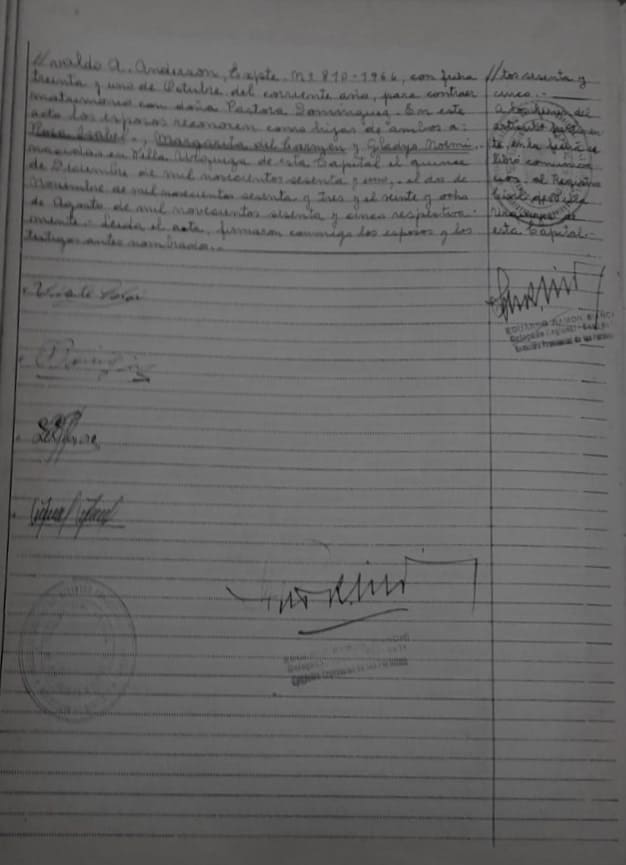 //svaldo A. Anderson, Expte. Nº 810-1966, con fecha
treinta y uno de Octubre del corriente año, para contraer
matrimonio con doña Pastora Dominguez. En este
acto los esposos reconocen como hijas de ambos a:
Rosa Isabel., Margarita del Carmen y Gladys Noemi.
nacidas en Villa Urquiza de esta Capital el quince
de Diciembre de mil novecientos sesenta y uno, el dos de
Noviembre de mil novecientos sesenta y tres y el veinte y ocho
de Agosto de mil novecientos sesenta y cinco respectiva-
mente. Leida el acta, firmaron conmigo los esposos y los
testigos antes nombrados.
//tos sesenta y
cinco.
a los fines del
articulo
te, en la fecha se
libró comunica-
ción al Registro
Civil de
esta Capital.
EDUARDO RAMON
Delegado